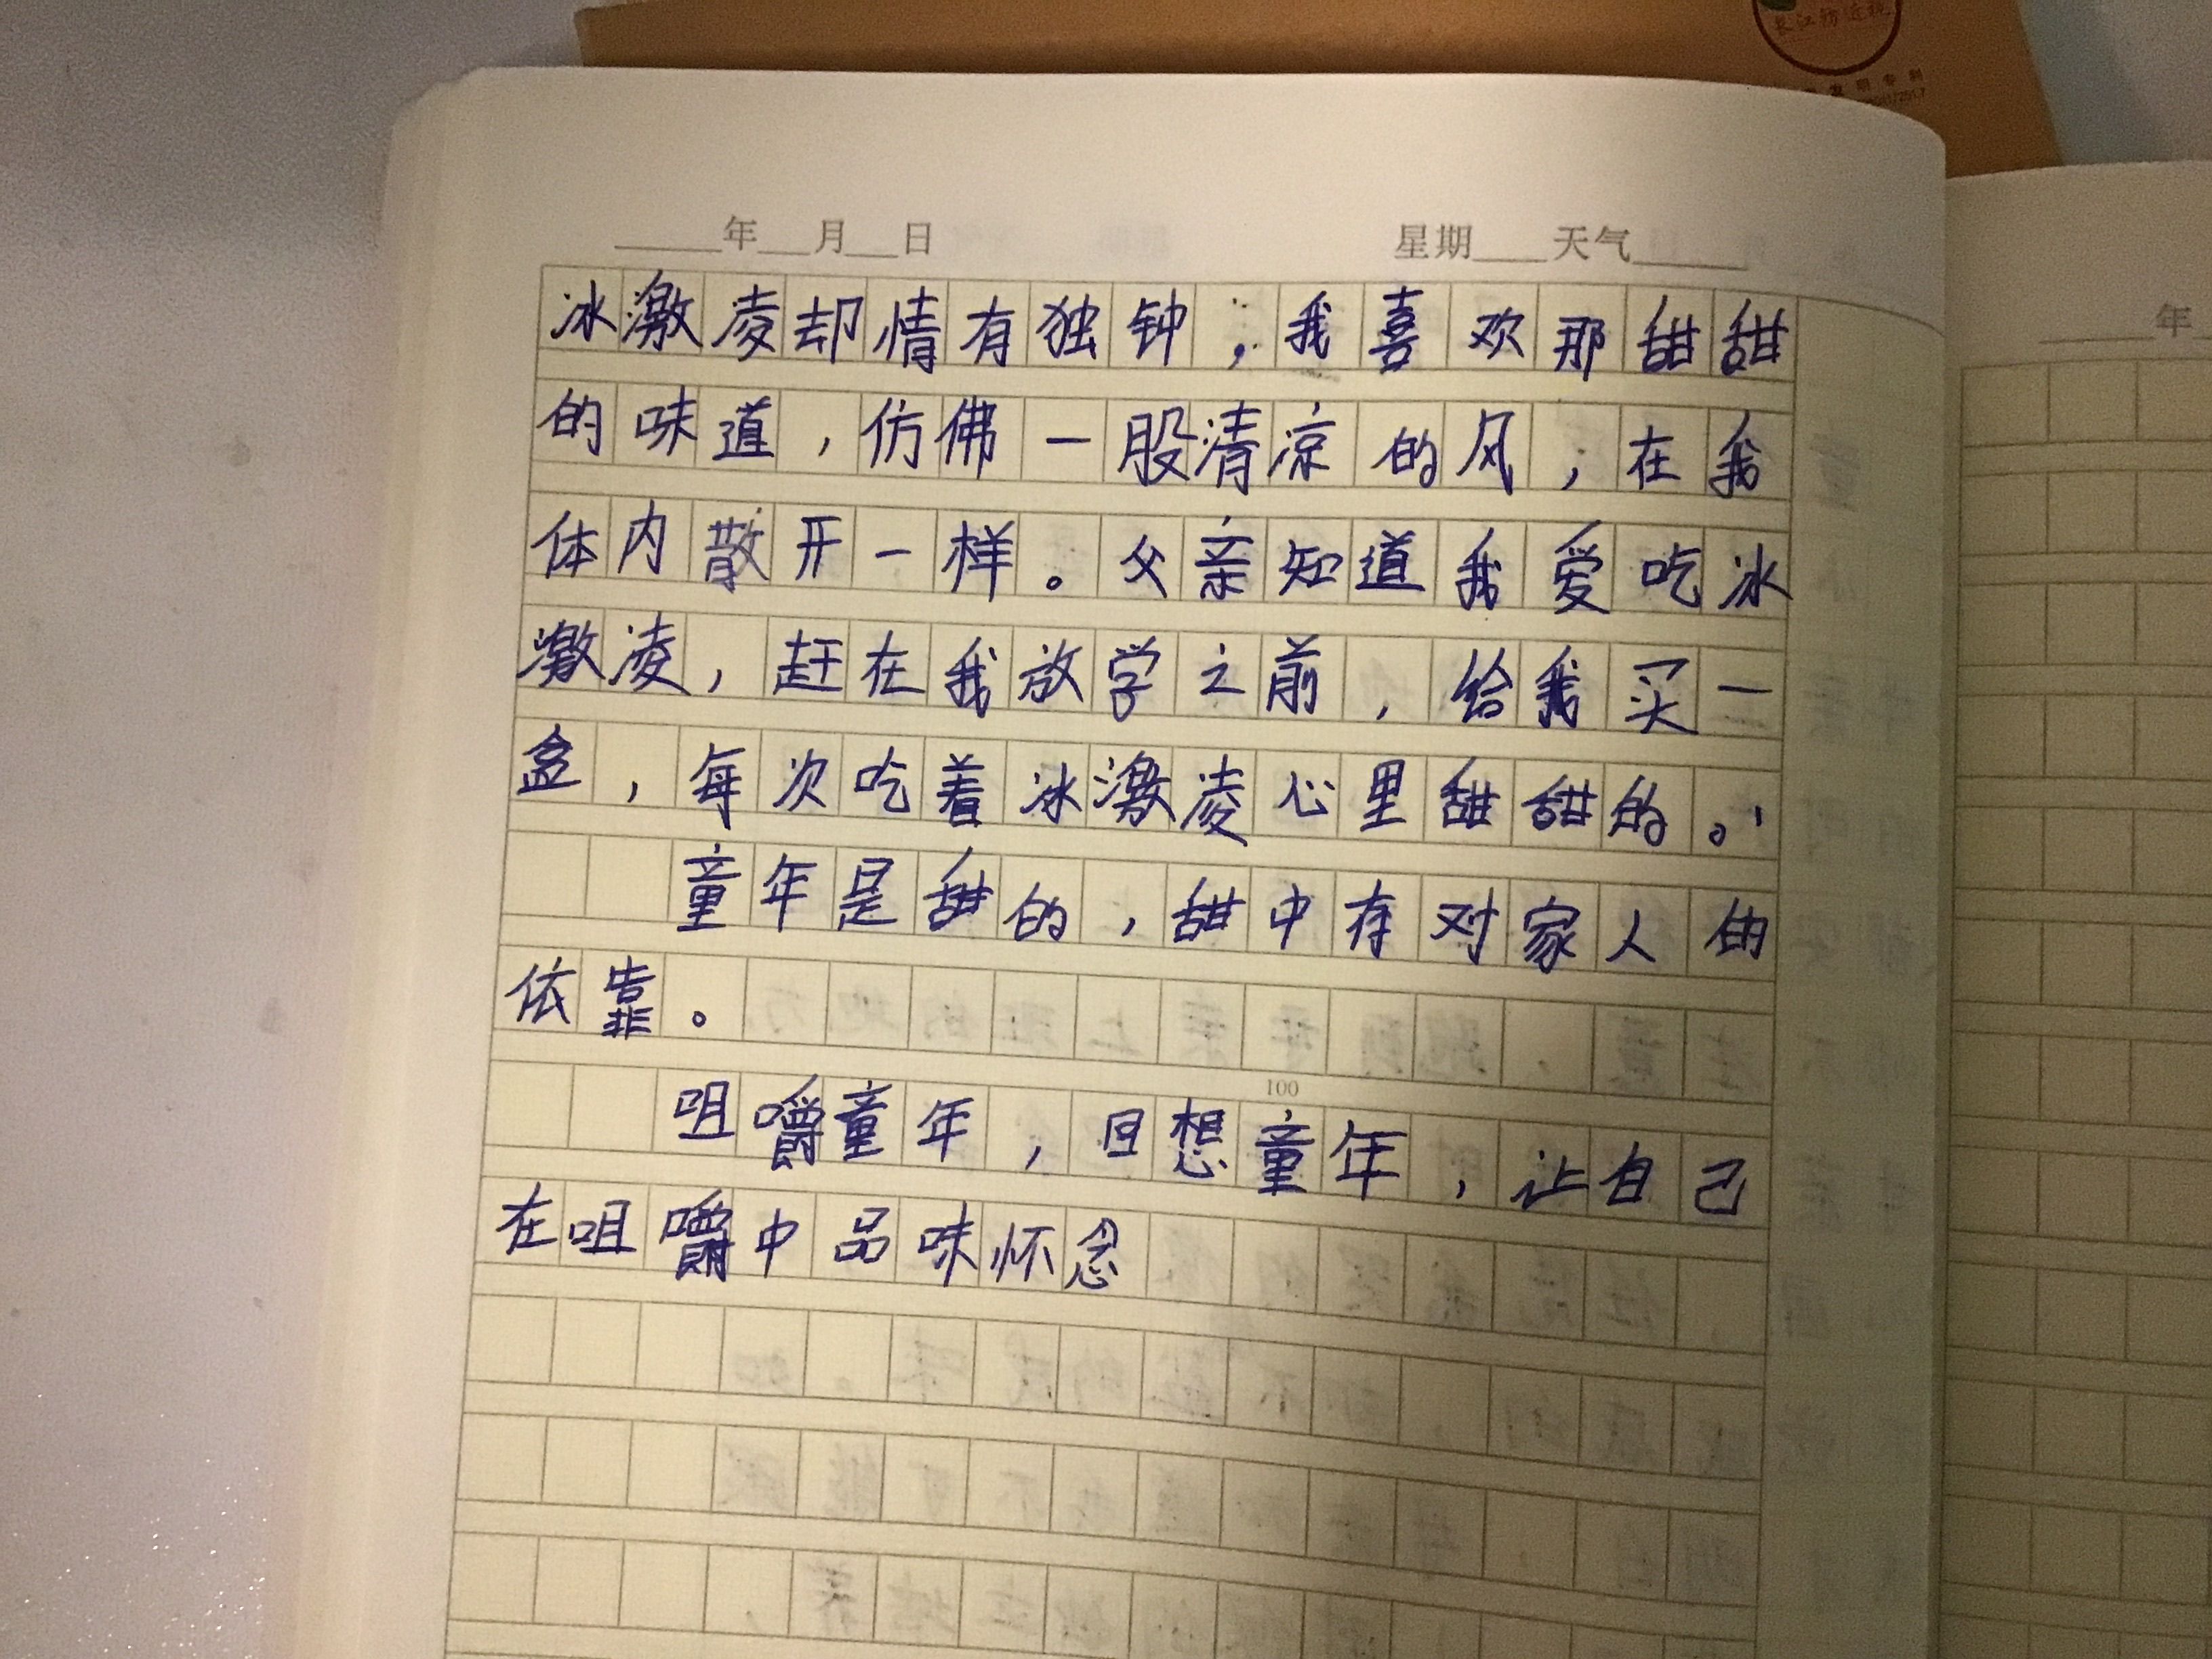 长江防近视
年 月 日 星期 天气
年
冰激凌却情有独钟，我喜欢那甜甜
的味道，仿佛一股清凉的风，在我
体内散开一样。父亲知道我爱吃冰
激凌，赶在我放学之前，给我买一
盒，每次吃着冰激凌心里甜甜的。
童年是甜的，甜中有对家人的
依靠。
100
咀嚼童年，回想童年，让自己
在咀嚼中品味怀念